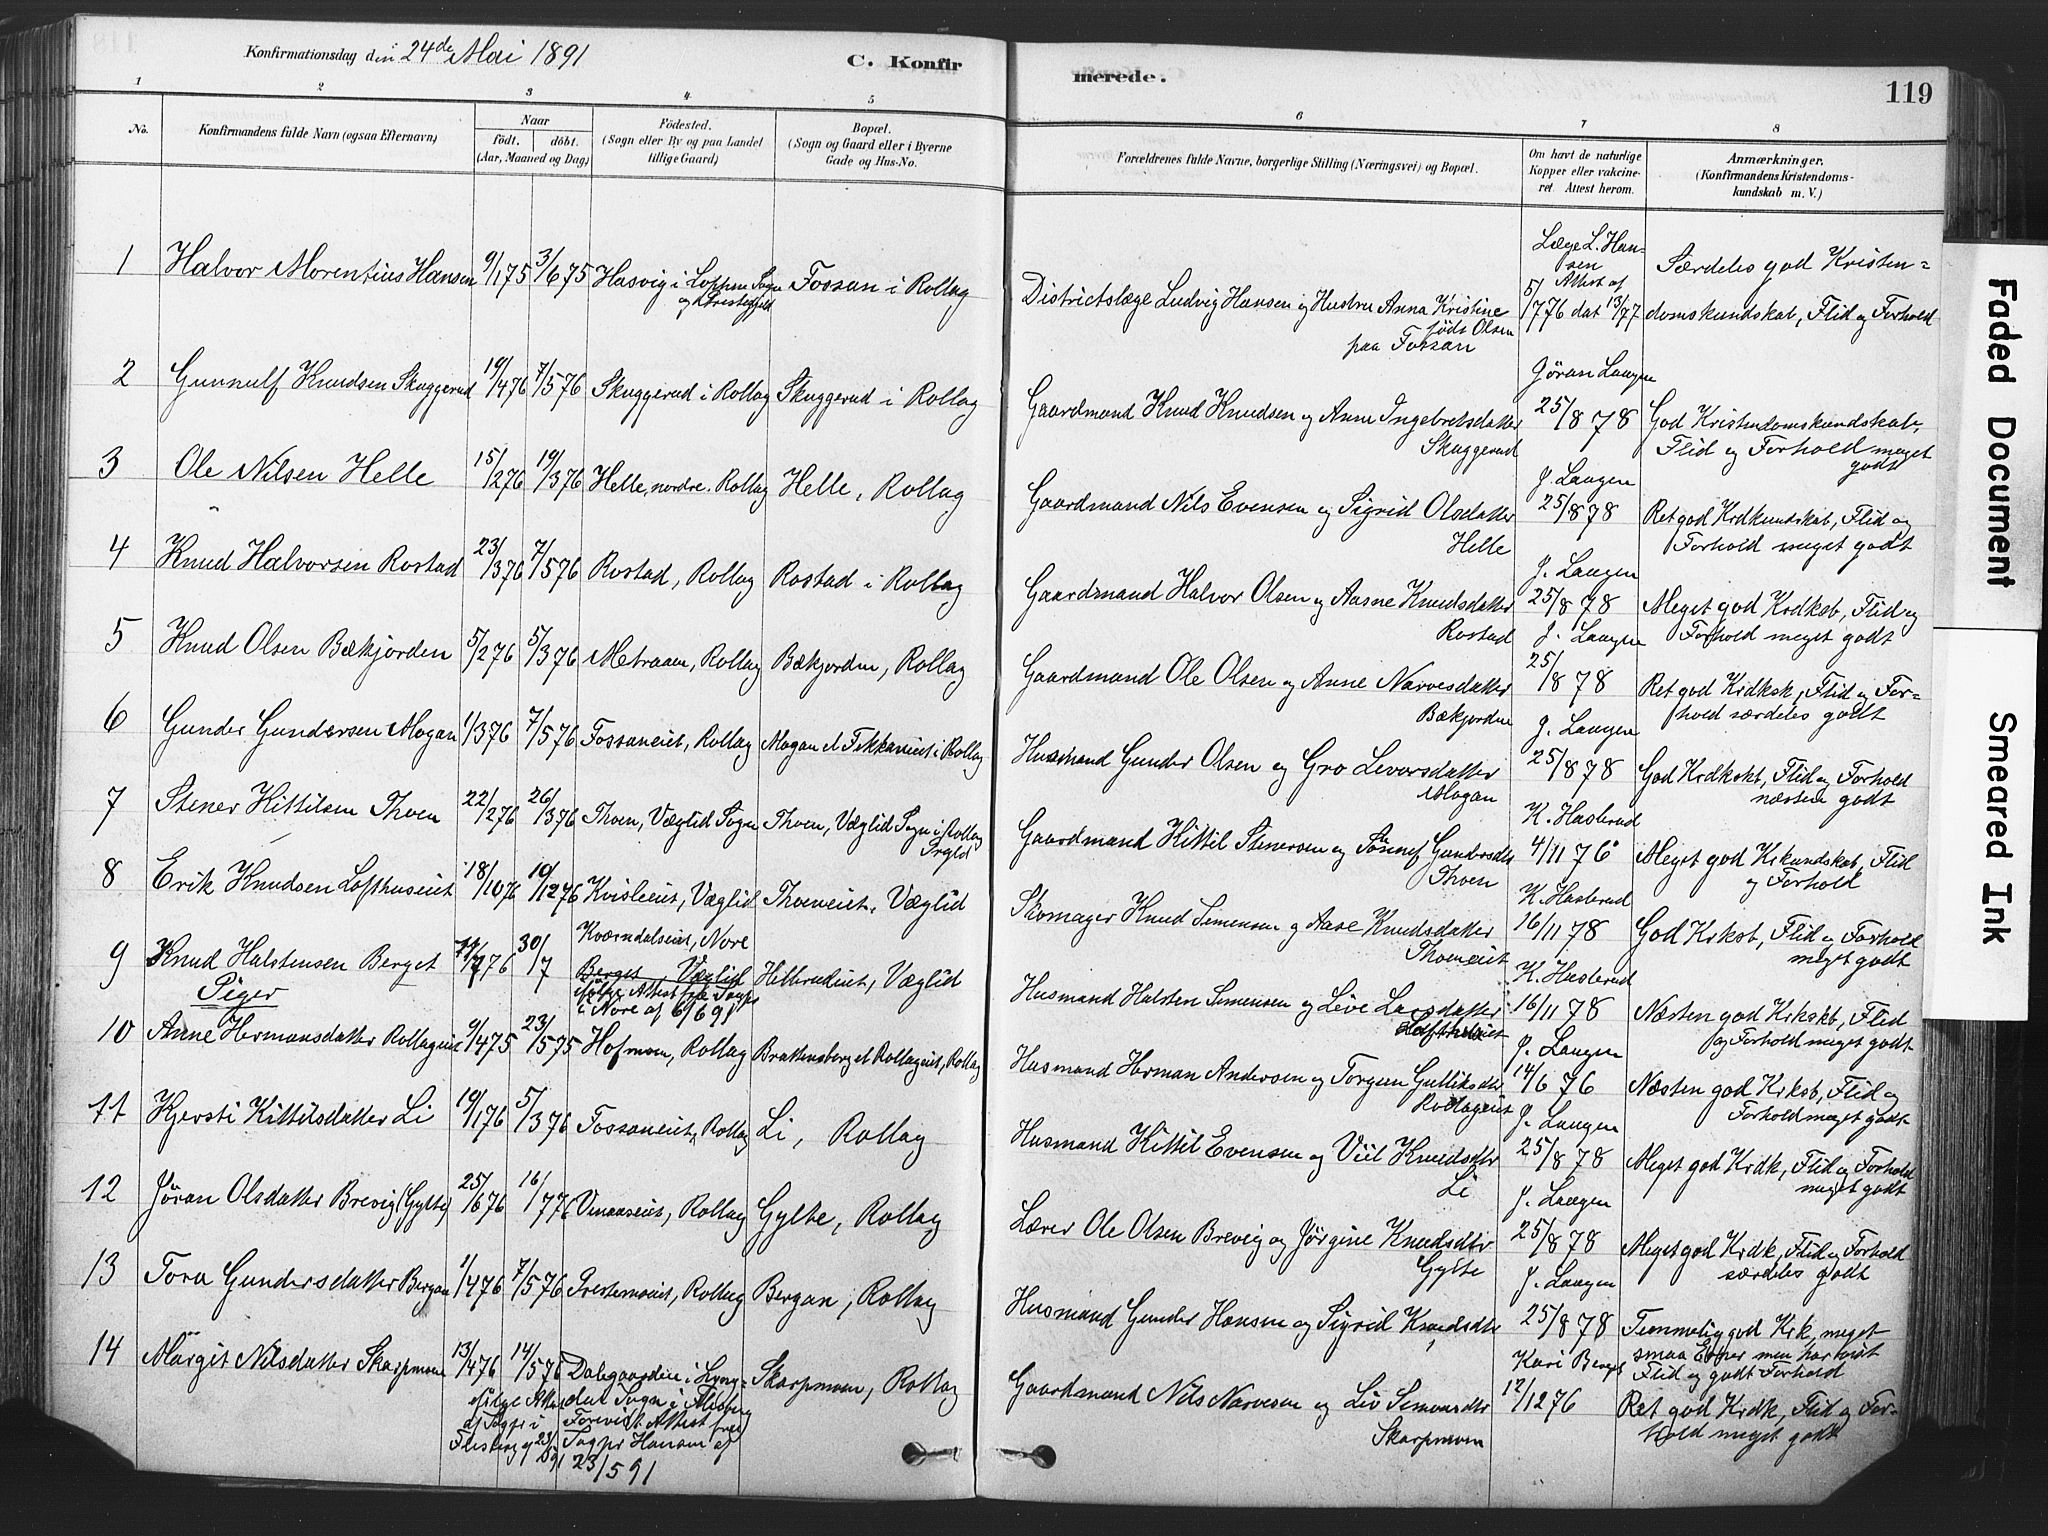 Konfirmationsdag den 24de Mai 1891
C. Konfirmerede.
119
1 2 3 4 5 6 7 8
No.
Konfirmandens fulde Navn (ogsaa Efternavn)
Naar
født. døbt.
(Aar, Maaned og Dag)
Fødested.
(Sogn eller By og paa Landet
tillige Gaard)
Bopæl.
(Sogn og Gaard eller i Byerne
Gade og Hus-No.
Forældrenes fulde Navne, borgerlige Stilling (Næringsvei) og Bopæl.
Om havt de naturlige
Kopper eller vakcine-
ret. Attest herom.
Anmærkninger.
(Konfirmandens Kristendoms-
kundskab m. V.)
1 Halvor Morentius Hansen 9/1 75 3/6 75 Hasvig i Loppen Sogn og Prestegjeld Fossan i Rollag
Districtslæge Ludvig Hansen og Hustru Anna Kristine
født Olsen
paa Fossan
Læge L. Han-
sen
Attest af
5/7 76 dat 13/77
Særdeles god Kristen=
domskundskab, Flid og Forhold
2 Gunnulf Knudsen Skuggerud 19/4 76 7/5 76 Skuggerud i Rollag Skuggerud i Rollag
Gaardmand Knud Knudsen og Anne Ingebretsdatter
Skuggerud
Jøran Laugen
25/8 78
God Kristendomskundskab,
Flid og Forhold meget
godt
3 Ole Nilsen Helle 15/2 76 19/3 76 Helle, nordre. Rollag Helle, Rollag
Gaardmand Nils Evensen og Sigrid Olsdatter
Helle
J. Laugen
25/8 78
Ret god Krdkundskab, Flid og
Forhold meget godt
4 Knud Halvorsen Rostad 23/3 76 7/5 76 Rostad, Rollag Rostad i Rollag
Gaardmand Halvor Olsen og Aasne Knudsdatter
Rostad
J. Laugen
25/8 78
Meget god Krdksb, Flid og
Forhold meget godt
5 Knud Olsen Bækjorden 5/2 76 5/3 76 Metraaen, Rollag Bækjorden, Rollag
Gaardmand Ole Olsen og Anne Narvesdatter
Bækjorden
J. Laugen
25/8 78
Ret god Krdksk, Flid og For=
hold særdeles godt
6 Gunder Gundersen Mogan 1/3 76 7/5 76 Fossaneiet, Rollag Mogan et Fekkaneiet i Rollag
Husmand Gunder Olsen og Gro Leversdatter
Mogan
J. Laugen
25/8 78
God Krdkskt, Flid og Forhold
næsten godt
7 Stener Kittilsen Thoen 22/2 76 26/3 76 Thoen, Væglid Sogn Thoen, Væglid Sogn i Rollag
Prgld
Gaardmand Kittil Stenersen og Sønnef Gundersdtr
Thoen
K. Haslerud
4/11 76
Meget god Krkundskab, Flid
og Forhold
8 Erik Knudsen Lofthuseiet 18/10 76 10/12 76 Kvisleeiet, Væglid Thoeneiet, Væglid
Skomager Knud Simensen og Aase Knudsdatter
Thoeneiet
K. Haslerud
16/11 78
God Krksb, Flid og Forhold
meget godt
9 Knud Halstensen Berget 76 30/7 Kværndalseiet, Nore
Berget, Væglid
ifølge Attest fra Sogpr
i Nore af 6/6 91
Hellerudeiet, Væglid
Husmand Halsten Simensen og Live Larsdatter
Lofthuseiet
K. Haslerud
16/11 78
Næsten god Krkskb, Flid
og Forhold meget godt
Piger
10 Anne Hermansdatter Rollageiet 9/4 75 23/5 75 Hofmoen, Rollag Brattensberg et Rollageiet, Rollag
Husmand Herman Andersen og Torgun Gulliksdtr
Rollageiet
J. Laugen
14/6 76
Næsten god Krksb, Flid og
Forhold meget godt
11 Kjersti Kittilsdatter Li 19/1 76 5/3 76 Fossaneiet, Rollag Li, Rollag
Husmand Kittil Evensen og Viil Knudsdtr
Li
J. Laugen
25/8 78
Meget god Krdk, Flid og Forhold
meget godt
12 Jøran Olsdatter Brevig (Gylte) 25/6 76 16/7 76 Vinaaseiet, Rollag Gylte, Rollag
Lærer Ole Olsen Brevig og Jørgine Knudsdtr
Gylte
J. Laugen
25/8 78
Meget god Krdk, Flid og Forhold
særdeles godt
13 Tora Gundersdatter Bergan 1/4 76 7/5 76 Prestemoeiet, Rollag Bergan, Rollag
Husmand Gunder Hansen og Sigrid Knudsdtr
J. Laugen
25/8 78
Temmelig god Krk, meget
smaa Evner men har havt
Flid og godt Forhold
14 Margit Nilsdatter Skarpmoen 13/4 76 14/5 76 Dalsgaarden i Lyng=
dal Sogn i Flesberg
ifølge Attest
af Sogpr i
Flesberg af 23/5 91
Forevist Attest fra
Sogpr Hansen af
23/5 91
Skarpmoen, Rollag
Gaardmand Nils Narvesen og Liv Simensdtr
Skarpmoen
Kari Berget
12/12 76
Ret god Krdk, Flid og For-
hold meget godt
Faded Document
Smeared Ink